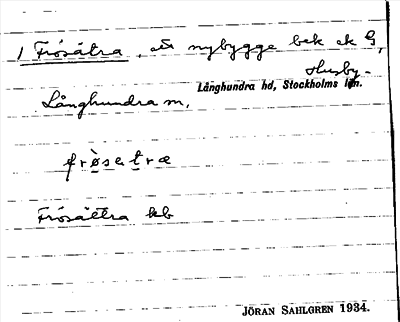 1 Frösätra, ett nybygge bek ek G,
Husby-
Långhundra hd, Stockholms län.
Långhundra sn,
frø̀sætræ
Frösättra kb
JÖRAN SAHLGREN 1934.